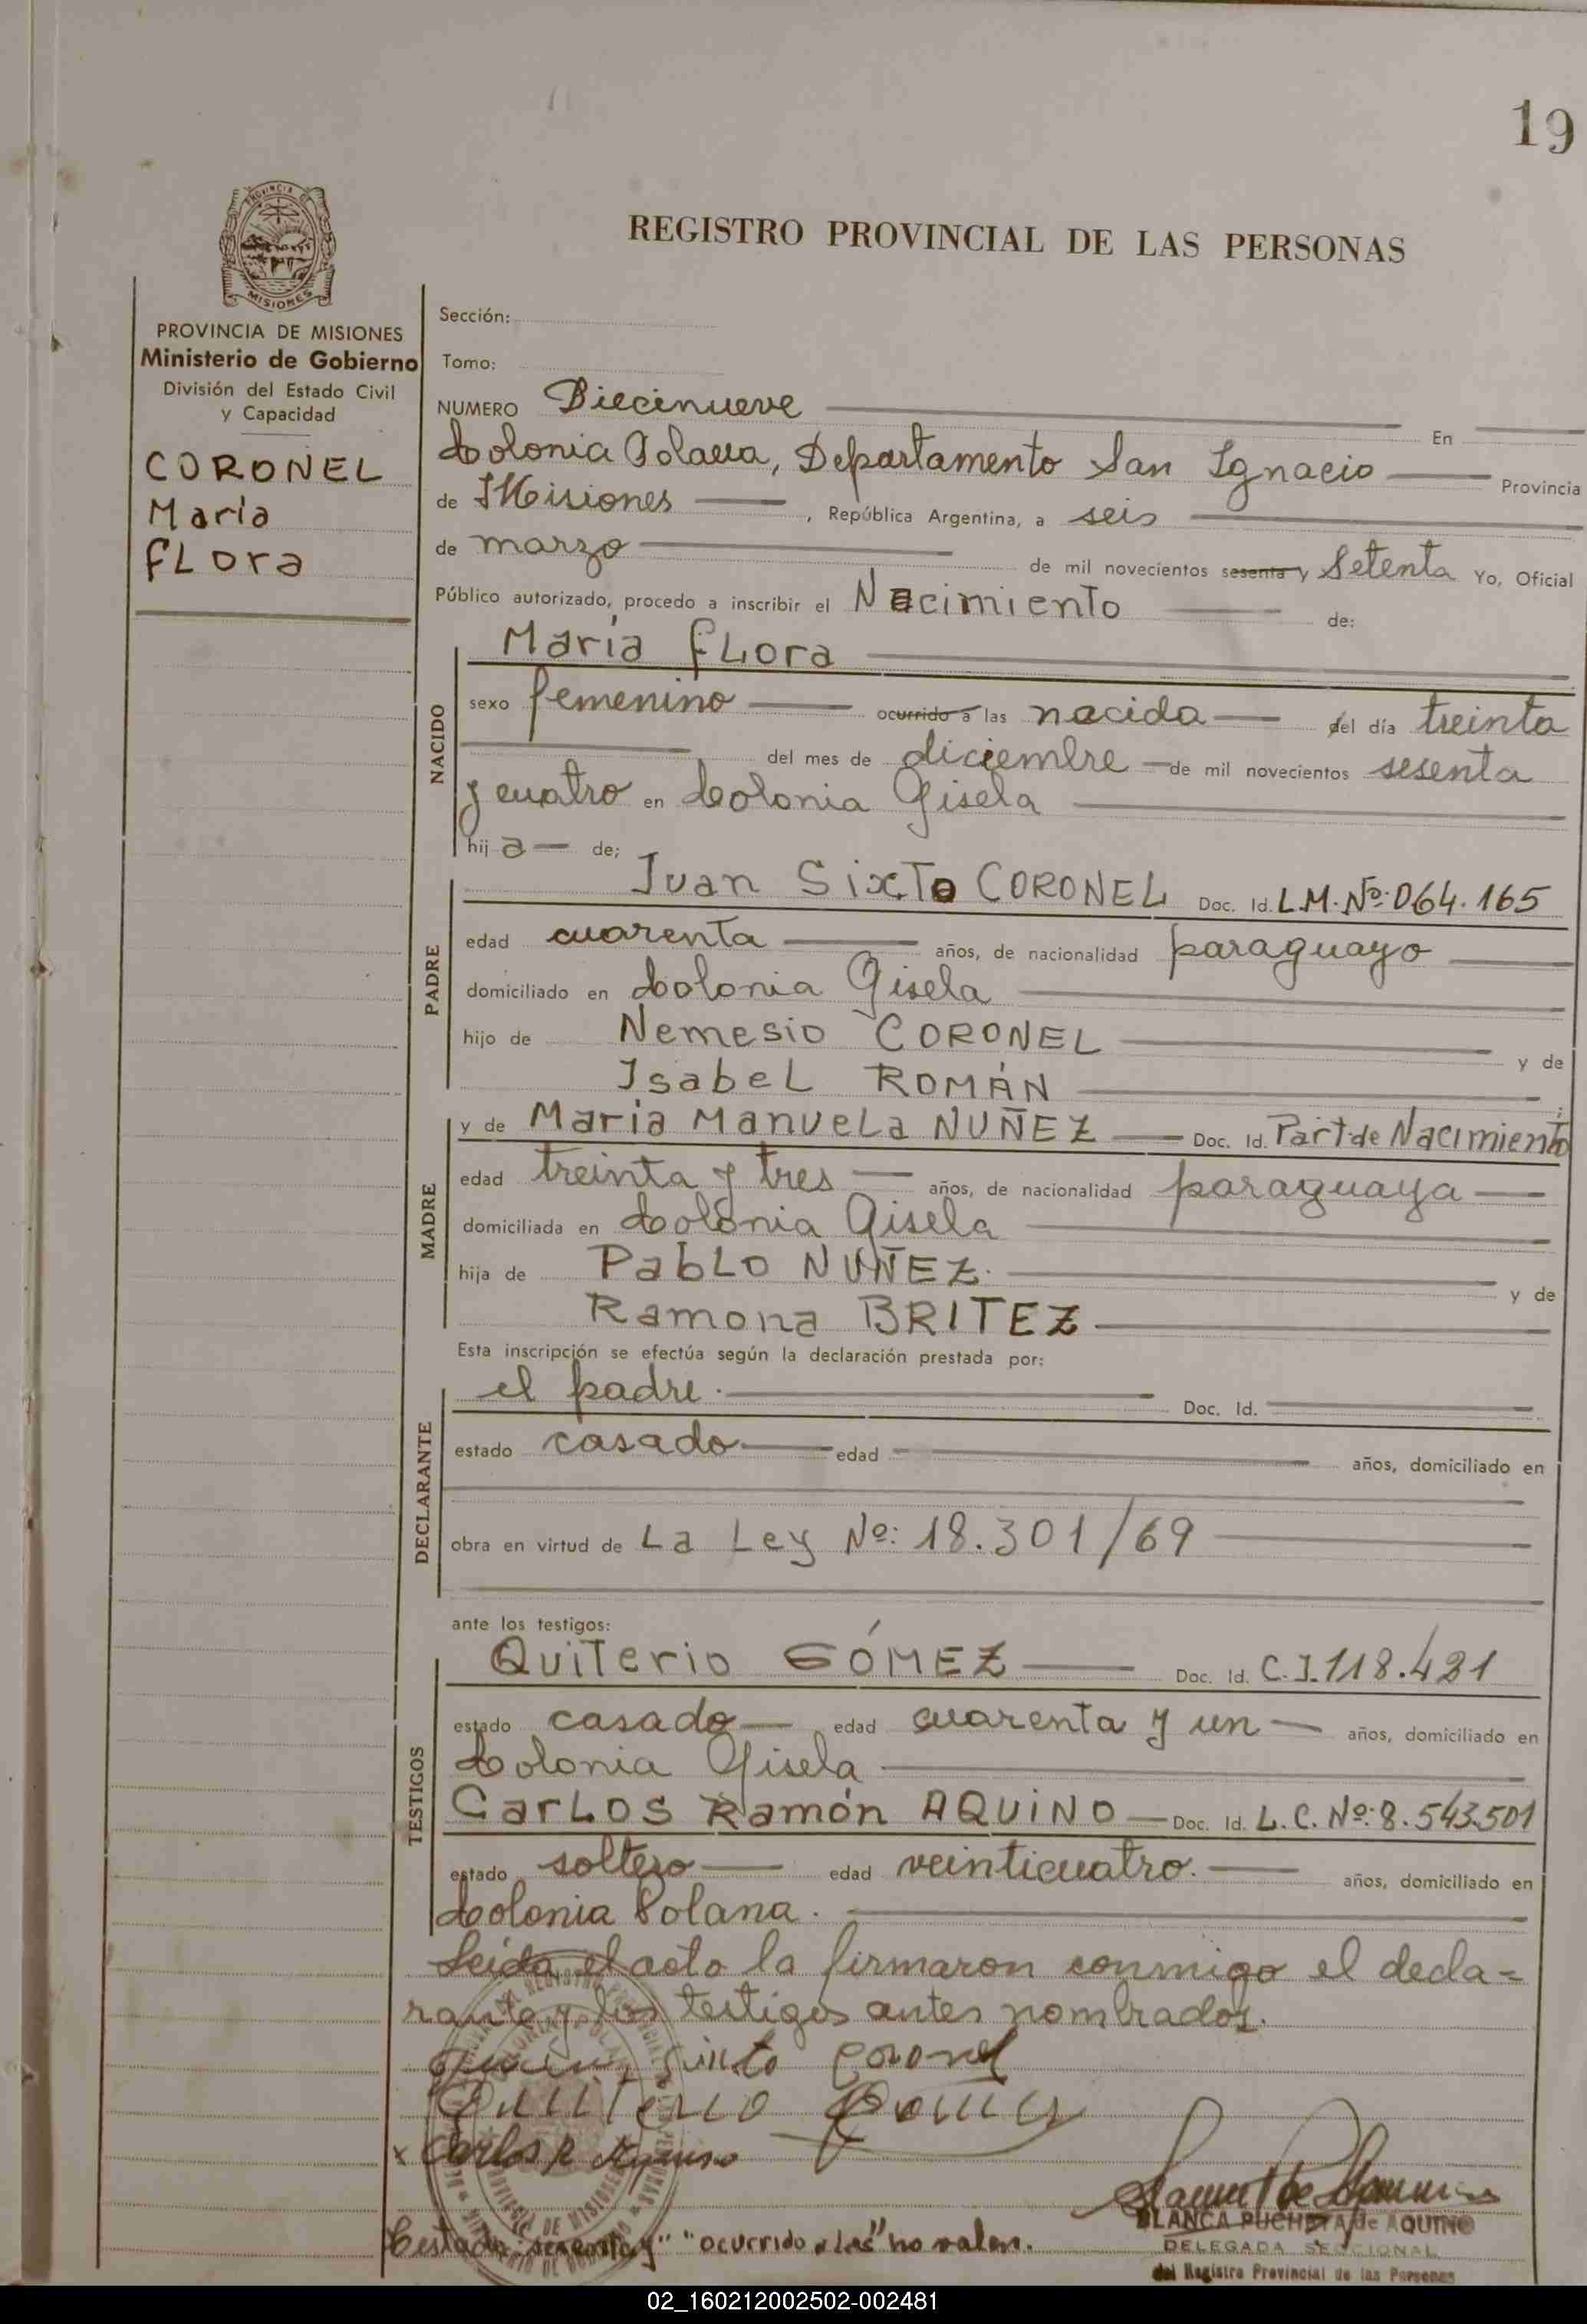 19
PROVINCIA DE
MISIONES
REGISTRO PROVINCIAL DE LAS PERSONAS
PROVINCIA DE MISIONES
Ministerio de Gobierno
División del Estado Civil
y Capacidad
CORONEL
María
FLora
Sección:
Tomo:
NUMERO Diecinueve En
Colonia Polana, Departamento San Ignacio Provincia
de Misiones, República Argentina, a seis
de marzo de mil novecientos sesenta y Setenta Yo, Oficial
Público autorizado, procedo a inscribir el Nacimiento de:
NACIDO
María FLora
sexo femenino ocurrido a las nacida del día treinta
del mes de diciembre de mil novecientos sesenta
y cuatro en Colonia Gisela
hija de;
PADRE
Juan Sixto CORONEL Doc. Id. L.M. Nº: 064.165
edad cuarenta años, de nacionalidad paraguayo
domiciliado en Colonia Gisela
hijo de Nemesio CORONEL y de
IsabeL ROMÁN
MADRE
y de María ManueLa NUÑEZ Doc. Id. Part. de Nacimiento
edad treinta y tres años, de nacionalidad paraguaya
domiciliada en Colonia Gisela
hija de PabLo NUÑEZ. y de
Ramona BRITEZ
Esta inscripción se efectúa según la declaración prestada por:
DECLARANTE
el padre. Doc. Id.
estado casado edad años, domiciliado en
obra en virtud de La Ley Nº: 18.301/69
ante los testigos:
TESTIGOS
Quiterio GÓMEZ Doc. Id. C.I. 118.421
estado casado edad cuarenta y un años, domiciliado en
Colonia Gisela
CarLos Ramón AQUINO Doc. Id. L.C. Nº: 8.543.501
estado soltero edad veinticuatro. años, domiciliado en
Colonia Polana.
Leida el acta la firmaron conmigo el decla=
rante y los testigos antes nombrados.
Juan Sixto Coronel
Quiterio Gomez
x Carlos R Aquino
BLANCA PUCHETA de AQUINO
DELEGADA SECCIONAL
del Registro Provincial de las Personas
Testado: "sesenta y" "ocurrido a las" no valen.
02_160212002502-002481